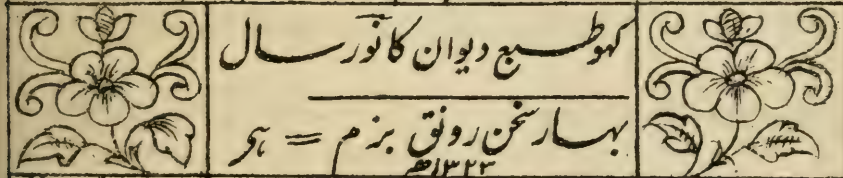 کہو طبع دیوان کا نورؔ سال
بہار سخن رونق بزم =
۱۳۲۳ھ